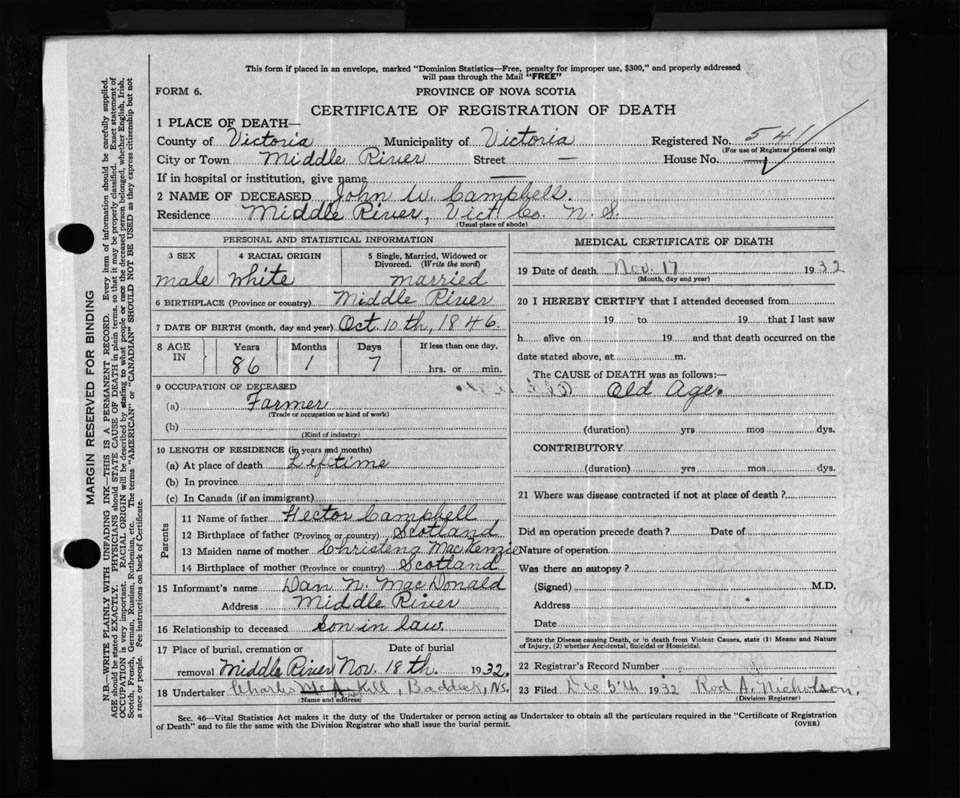 This form if placed in an envelope, marked "Dominion Statistics—Free, penalty for improper use, $300," and properly addressed
will pass through the Mail "FREE"
FORM 6. PROVINCE OF NOVA SCOTIA
CERTIFICATE OF REGISTRATION OF DEATH
1 PLACE OF DEATH—
County of Victoria Municipality of Victoria Registered No. 541
(For use of Registrar General only)
City or Town Middle River Street — House No.
If in hospital or institution, give name —
2 NAME OF DECEASED John W. Campbell.
Residence Middle River, Vict. Co. N. S.
(Usual place of abode)
PERSONAL AND STATISTICAL INFORMATION
3 SEX 4 RACIAL ORIGIN 5 Single, Married, Widowed or
Divorced. (Write the word)
male White married
6 BIRTHPLACE (Province or country) Middle River
7 DATE OF BIRTH (month, day and year) Oct. 10th, 1846.
8 AGE IN Years Months Days If less than one day,
86 1 7 hrs. or min.
9 OCCUPATION OF DECEASED
(a) Farmer
(Trade or occupation or kind of work)
(b)
(Kind of industry)
10 LENGTH OF RESIDENCE (in years and months)
(a) At place of death Lifetime
(b) In province
(c) In Canada (if an immigrant)
Parents
11 Name of father Hector Campbell
12 Birthplace of father (Province or country) Scotland
13 Maiden name of mother Christena MacKenzie
14 Birthplace of mother (Province or country) Scotland
15 Informant's name Dan N. MacDonald
Address Middle River
16 Relationship to deceased Son in law.
17 Place of burial, cremation or Date of burial
removal Middle River Nov. 18th. 1932.
18 Undertaker Charles McAskill, Baddeck, N.S.
(Name and address)
MEDICAL CERTIFICATE OF DEATH
19 Date of death Nov. 17 1932
(Month, day and year)
20 I HEREBY CERTIFY that I attended deceased from
19 to 19 that I last saw
h alive on 19 and that death occurred on the
date stated above, at m.
The CAUSE of DEATH was as follows:—
Old Age.
(duration) yrs mos dys.
CONTRIBUTORY
(duration) yrs mos dys.
21 Where was disease contracted if not at place of death?
Did an operation precede death? Date of
Nature of operation
Was there an autopsy?
(Signed) M.D.
Address
Date
State the Disease causing Death, or in death from Violent Causes, state (1) Means and Nature
of Injury, (2) whether Accidental, Suicidal or Homicidal.
22 Registrar's Record Number
23 Filed Dec 5th 1932 Rod A. Nicholson.
(Division Registrar)
Sec. 46—Vital Statistics Act makes it the duty of the Undertaker or person acting as Undertaker to obtain all the particulars required in the "Certificate of Registration
of Death" and to file the same with the Division Registrar who shall issue the burial permit. (OVER)
MARGIN RESERVED FOR BINDING
N.B.—WRITE PLAINLY WITH UNFADING INK—THIS IS A PERMANENT RECORD. Every item of information should be carefully supplied.
AGE should be stated EXACTLY. PHYSICIANS should STATE CAUSE OF DEATH in plain terms, so that it may be properly classified. Exact statement of
OCCUPATION is very important. RACIAL ORIGIN will be described by stating to what people or race the deceased person belonged, whether English, Irish,
Scotch, French, German, Russian, Ruthenian, etc. The terms "AMERICAN" or "CANADIAN" SHOULD NOT BE USED as they express citizenship but not
a race or people. See instructions on back of Certificate.